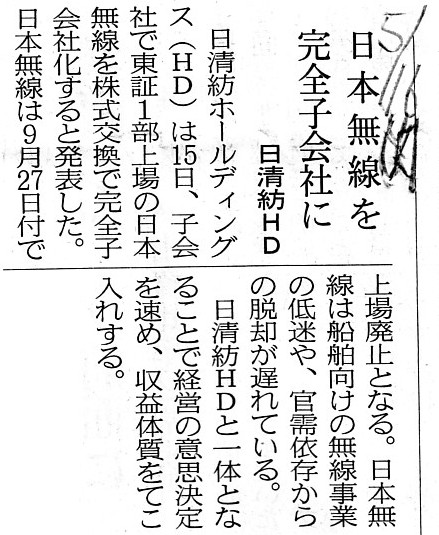 日本無線を
完全子会社に
日清紡HD
日清紡ホールディング
ス(HD)は15日、子会
社で東証1部上場の日本
無線を株式交換で完全子
会社化すると発表した。
日本無線は9月27日付で
上場廃止となる。日本無
線は船舶向けの無線事業
の低迷や、官需依存から
の脱却が遅れている。
日清紡HDと一体とな
ることで経営の意思決定
を速め、収益体質をてこ
入れする。